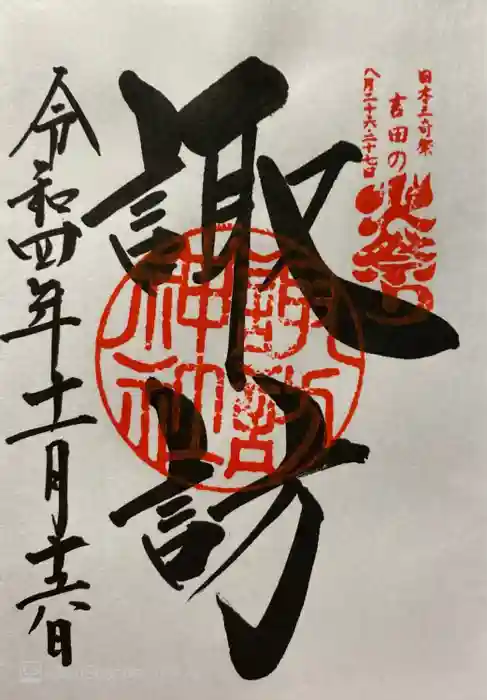 日本三奇祭
吉田の火祭り
八月二十六・二十七日
諏訪
諏訪
神社
令和四年十一月